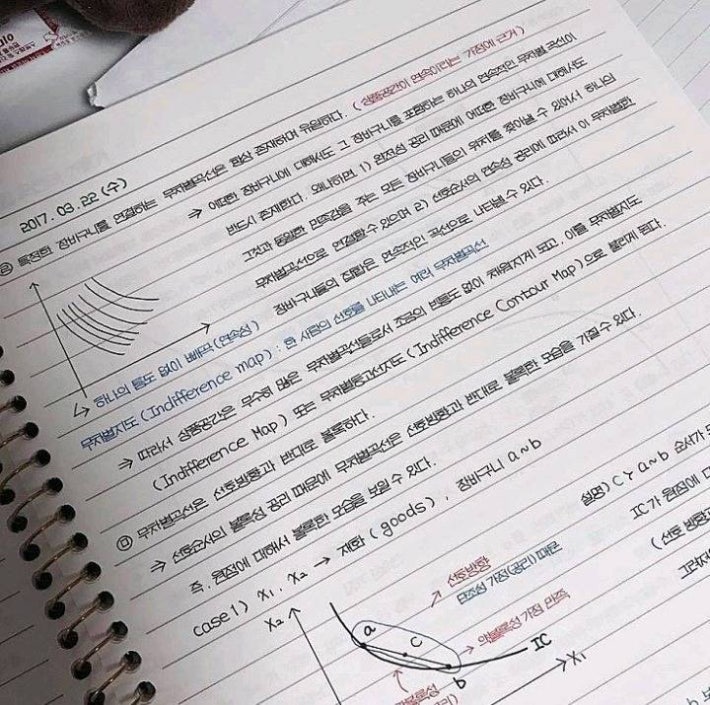 2017. 03. 22 (수)
ⓐ 특정한 장바구니를 연결하는 무차별곡선은 항상 존재하며 유일하다. (상품공간이 연속이라는 가정에 근거)
→ 어떠한 장바구니에 대해서도 그 장바구니를 포함하는 하나의 연속적인 무차별 곡선이
반드시 존재한다. 왜냐하면 1) 완전성 공리 때문에 어떠한 장바구니에 대해서도
그것과 동일한 만족감을 주는 모든 장바구니들의 위치를 찾아낼 수 있어서 하나의
무차별곡선으로 연결할 수 있으며 2) 선호순서의 연속성 공리에 따라서 이 무차별한
장바구니들의 집합은 연속적인 곡선으로 나타날 수 있다.
↳ 하나의 틈도 없이 빼곡 (연속성)
무차별지도 (Indifference map) : 한 사람의 선호를 나타내는 여러 무차별곡선
→ 따라서 상품공간은 무수히 많은 무차별곡선들로서 조금의 빈틈도 없이 채워지게 되고, 이를 무차별지도
(Indifference Map) 또는 무차별등고선지도 (Indifference Contour Map)으로 불리게 된다.
ⓑ 무차별곡선은 선호방향과 반대로 볼록하다.
→ 선호순서의 볼록성 공리 때문에 무차별곡선은 선호방향과 반대로 볼록한 모습을 가질 수 있다.
즉, 원점에 대해서 볼록한 모습을 보일 수 있다.
case 1) x₁, x₂ → 재화 (goods), 장바구니 a~b
설명) C≻a~b 순서가
IC가 원점에
(선호 방향과
그려져
x₂
선호방향
단조성 가정(공리) 때문
a
c
약볼록성 가정 만족
IC
b
x₁